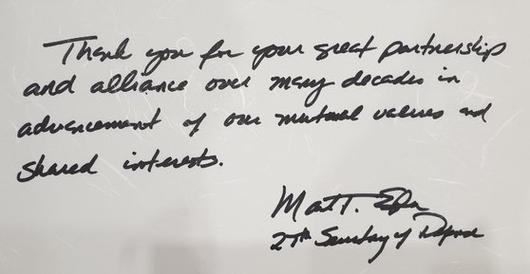 Thank you for your great partnership
and alliance over many decades in
advancement of our mutual values and
shared interests.
Mark T. Esper
27th Secretary of Defense